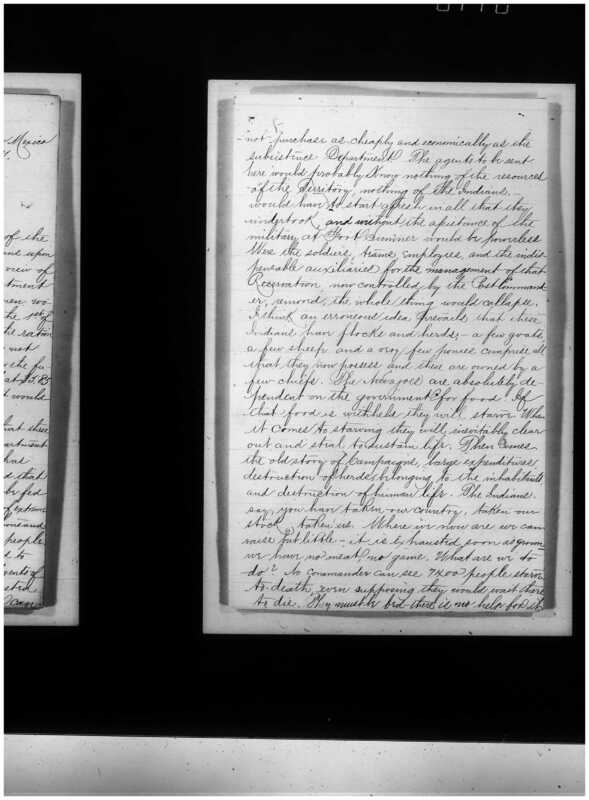 Mexico
of the
upon
view of
tment
the 1st of
the ration
not
the fu-
at Ft. B
would
that these
artment
has
d that
be fed
of extrava
people
d to
pents of
can
not purchase as cheaply and economically as the
subsistence Department. The agents to be sent
here would probably know nothing of the resources
of the Territory, nothing of the Indians, -
would have to start afresh in all that they
undertook, and without the assistance of the
military at Fort Sumner would be powerless
Were the soldiers, teams, employees, and the indis
pensable auxiliaries for the management of that
Reservation, now controlled by the Post Command
er, removed, the whole thing would collapse.
I think an erroneous idea prevails that these
Indians have flocks and herds; - a few goats,
a few sheep and a very few ponies comprise all
that they now possess and these are owned by a
few chiefs. The Navajoes are absolutely de-
pendent on the government for food. If
that food is withheld they will starve. When
it comes to starving they will inevitably clear
out and steal to sustain life. Then comes
the old story of Campaigns, large expenditures,
destruction of herds belonging to the inhabitants
and destruction of human life. The Indians
say, you have taken our country, taken our
stock, taken us. Where we now are we can
raise but little - it is exhausted soon as grown
we have no meat, no game. What are we to
do? No Commander can see 7200 people starve
to death, even supposing they would wait there
to die. They must be fed there is no help for it